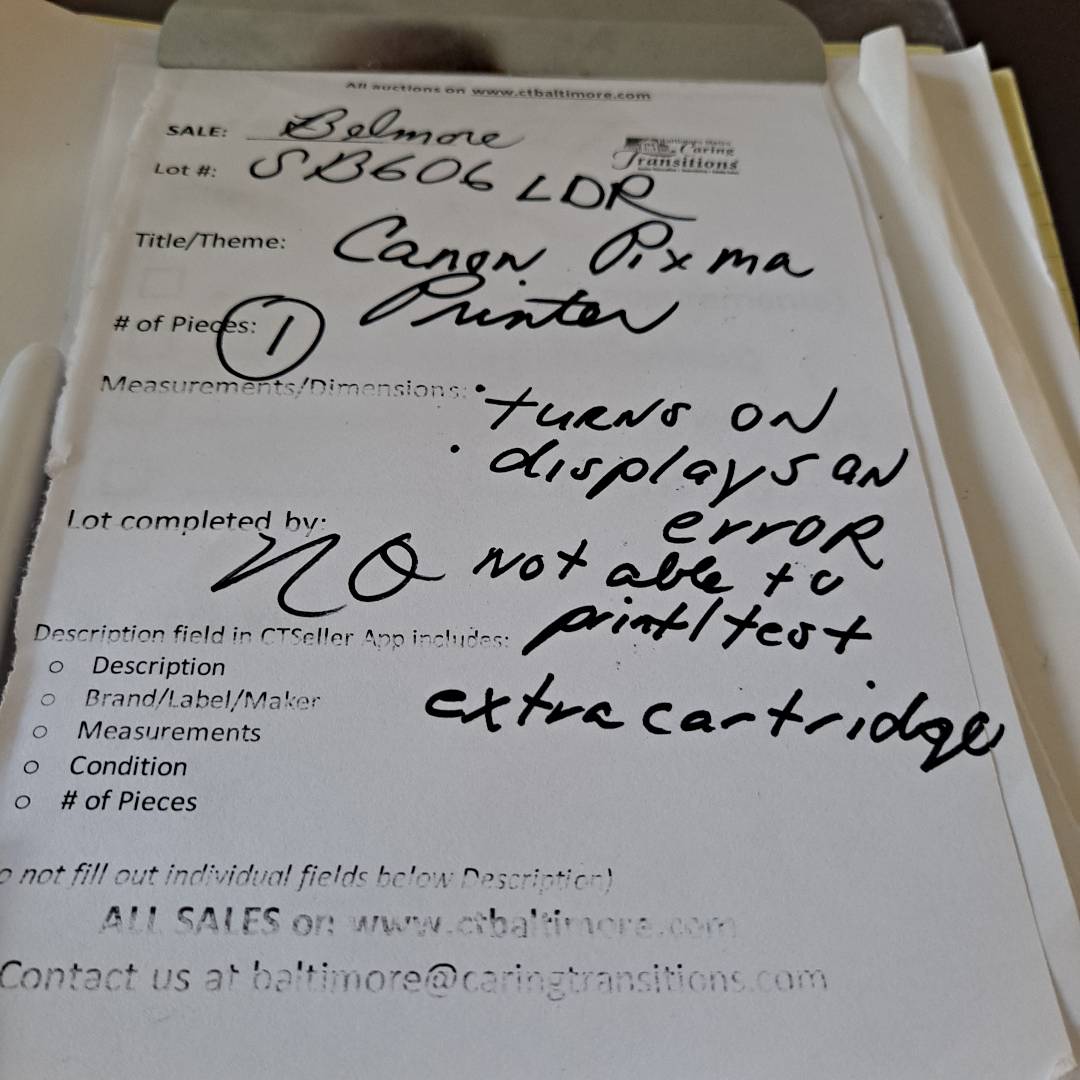 All auctions on www.ctbaltimore.com
SALE: Belmore
Caring
Transitions
Lot #: SB606 LDR
Title/Theme: Canon Pixma
Printer
# of Pieces: 1
Measurements/Dimensions: • TURNS ON
• displays an
error
Lot completed by: NO not able to
print/test
Description field in CTSeller App includes:
extra cartridge
○ Description
○ Brand/Label/Maker
○ Measurements
○ Condition
○ # of Pieces
o not fill out individual fields below Description)
ALL SALES on: www.ctbaltimore.com
Contact us at baltimore@caringtransitions.com